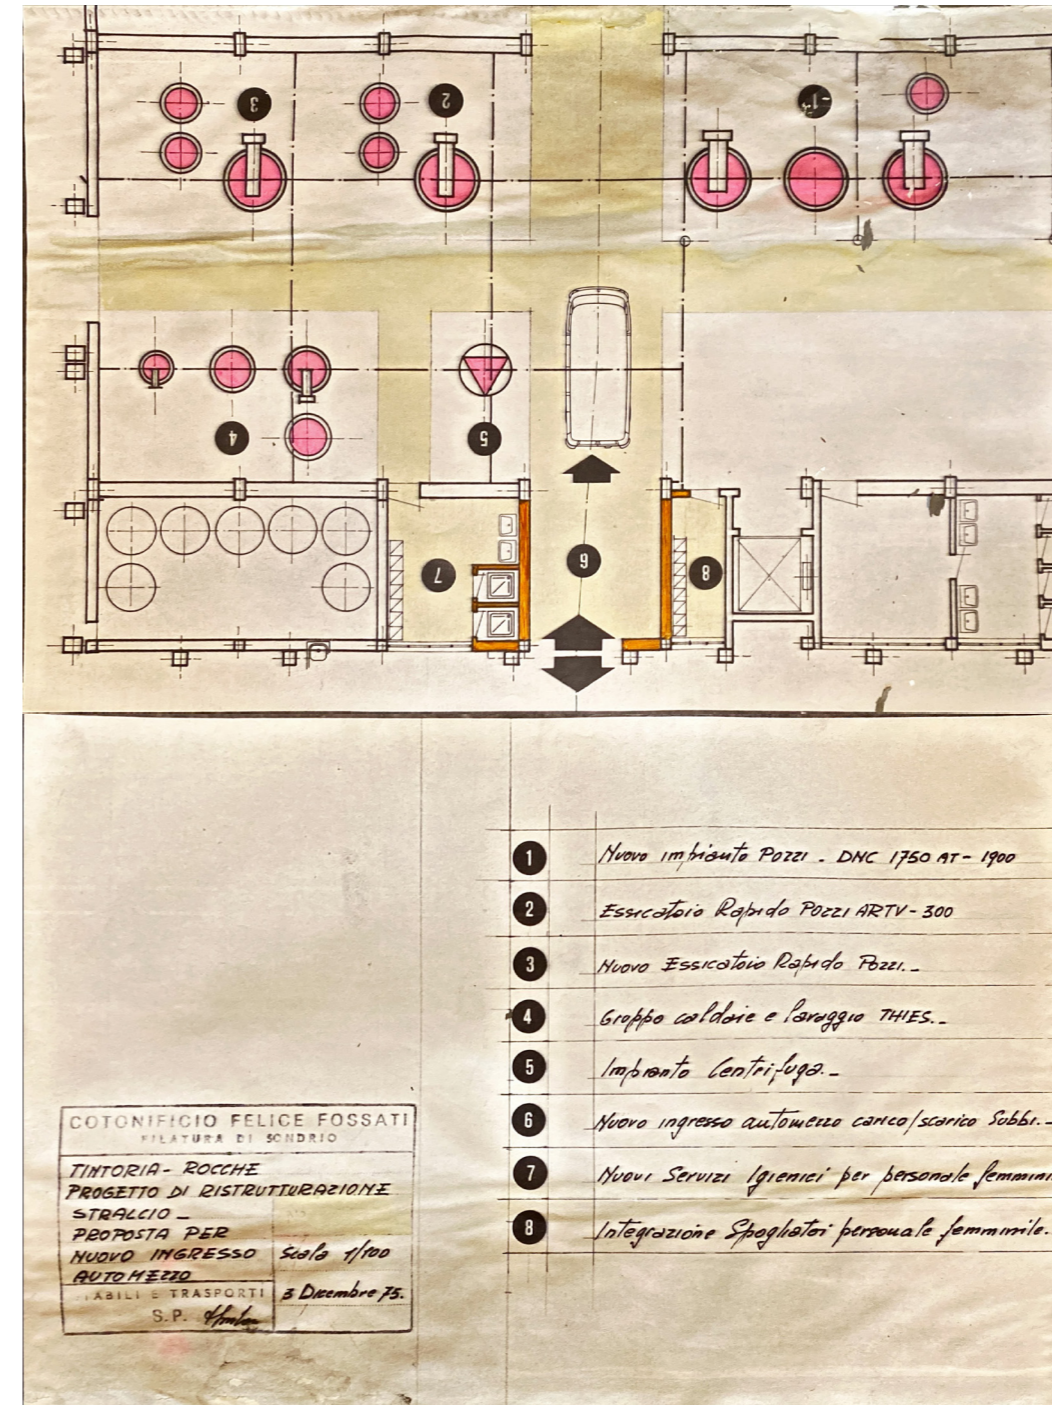 3
2
1
4
5
6
7
8
1 Nuovo impianto Pozzi - DNC 1750 AT - 1900
2 Essicatoio Rapido Pozzi ARTV - 300
3 Nuovo Essicatoio Rapido Pozzi. -
4 Groppo caldaie e lavaggio THIES. -
5 Impianto Centrifuga. -
6 Nuovo ingresso automezzo carico/scarico Subbi. -
7 Nuovi Servizi Igienici per personale femmini
8 Integrazione Spogliatoi personale femminile.
COTONIFICIO FELICE FOSSATI
FILATURA DI SONDRIO
TINTORIA - ROCCHE
PROGETTO DI RISTRUTTURAZIONE
STRALCIO -
PROPOSTA PER
NUOVO INGRESSO
AUTOMEZZO
Scala 1/100
TABILI E TRASPORTI
3 Dicembre 75.
S.P.